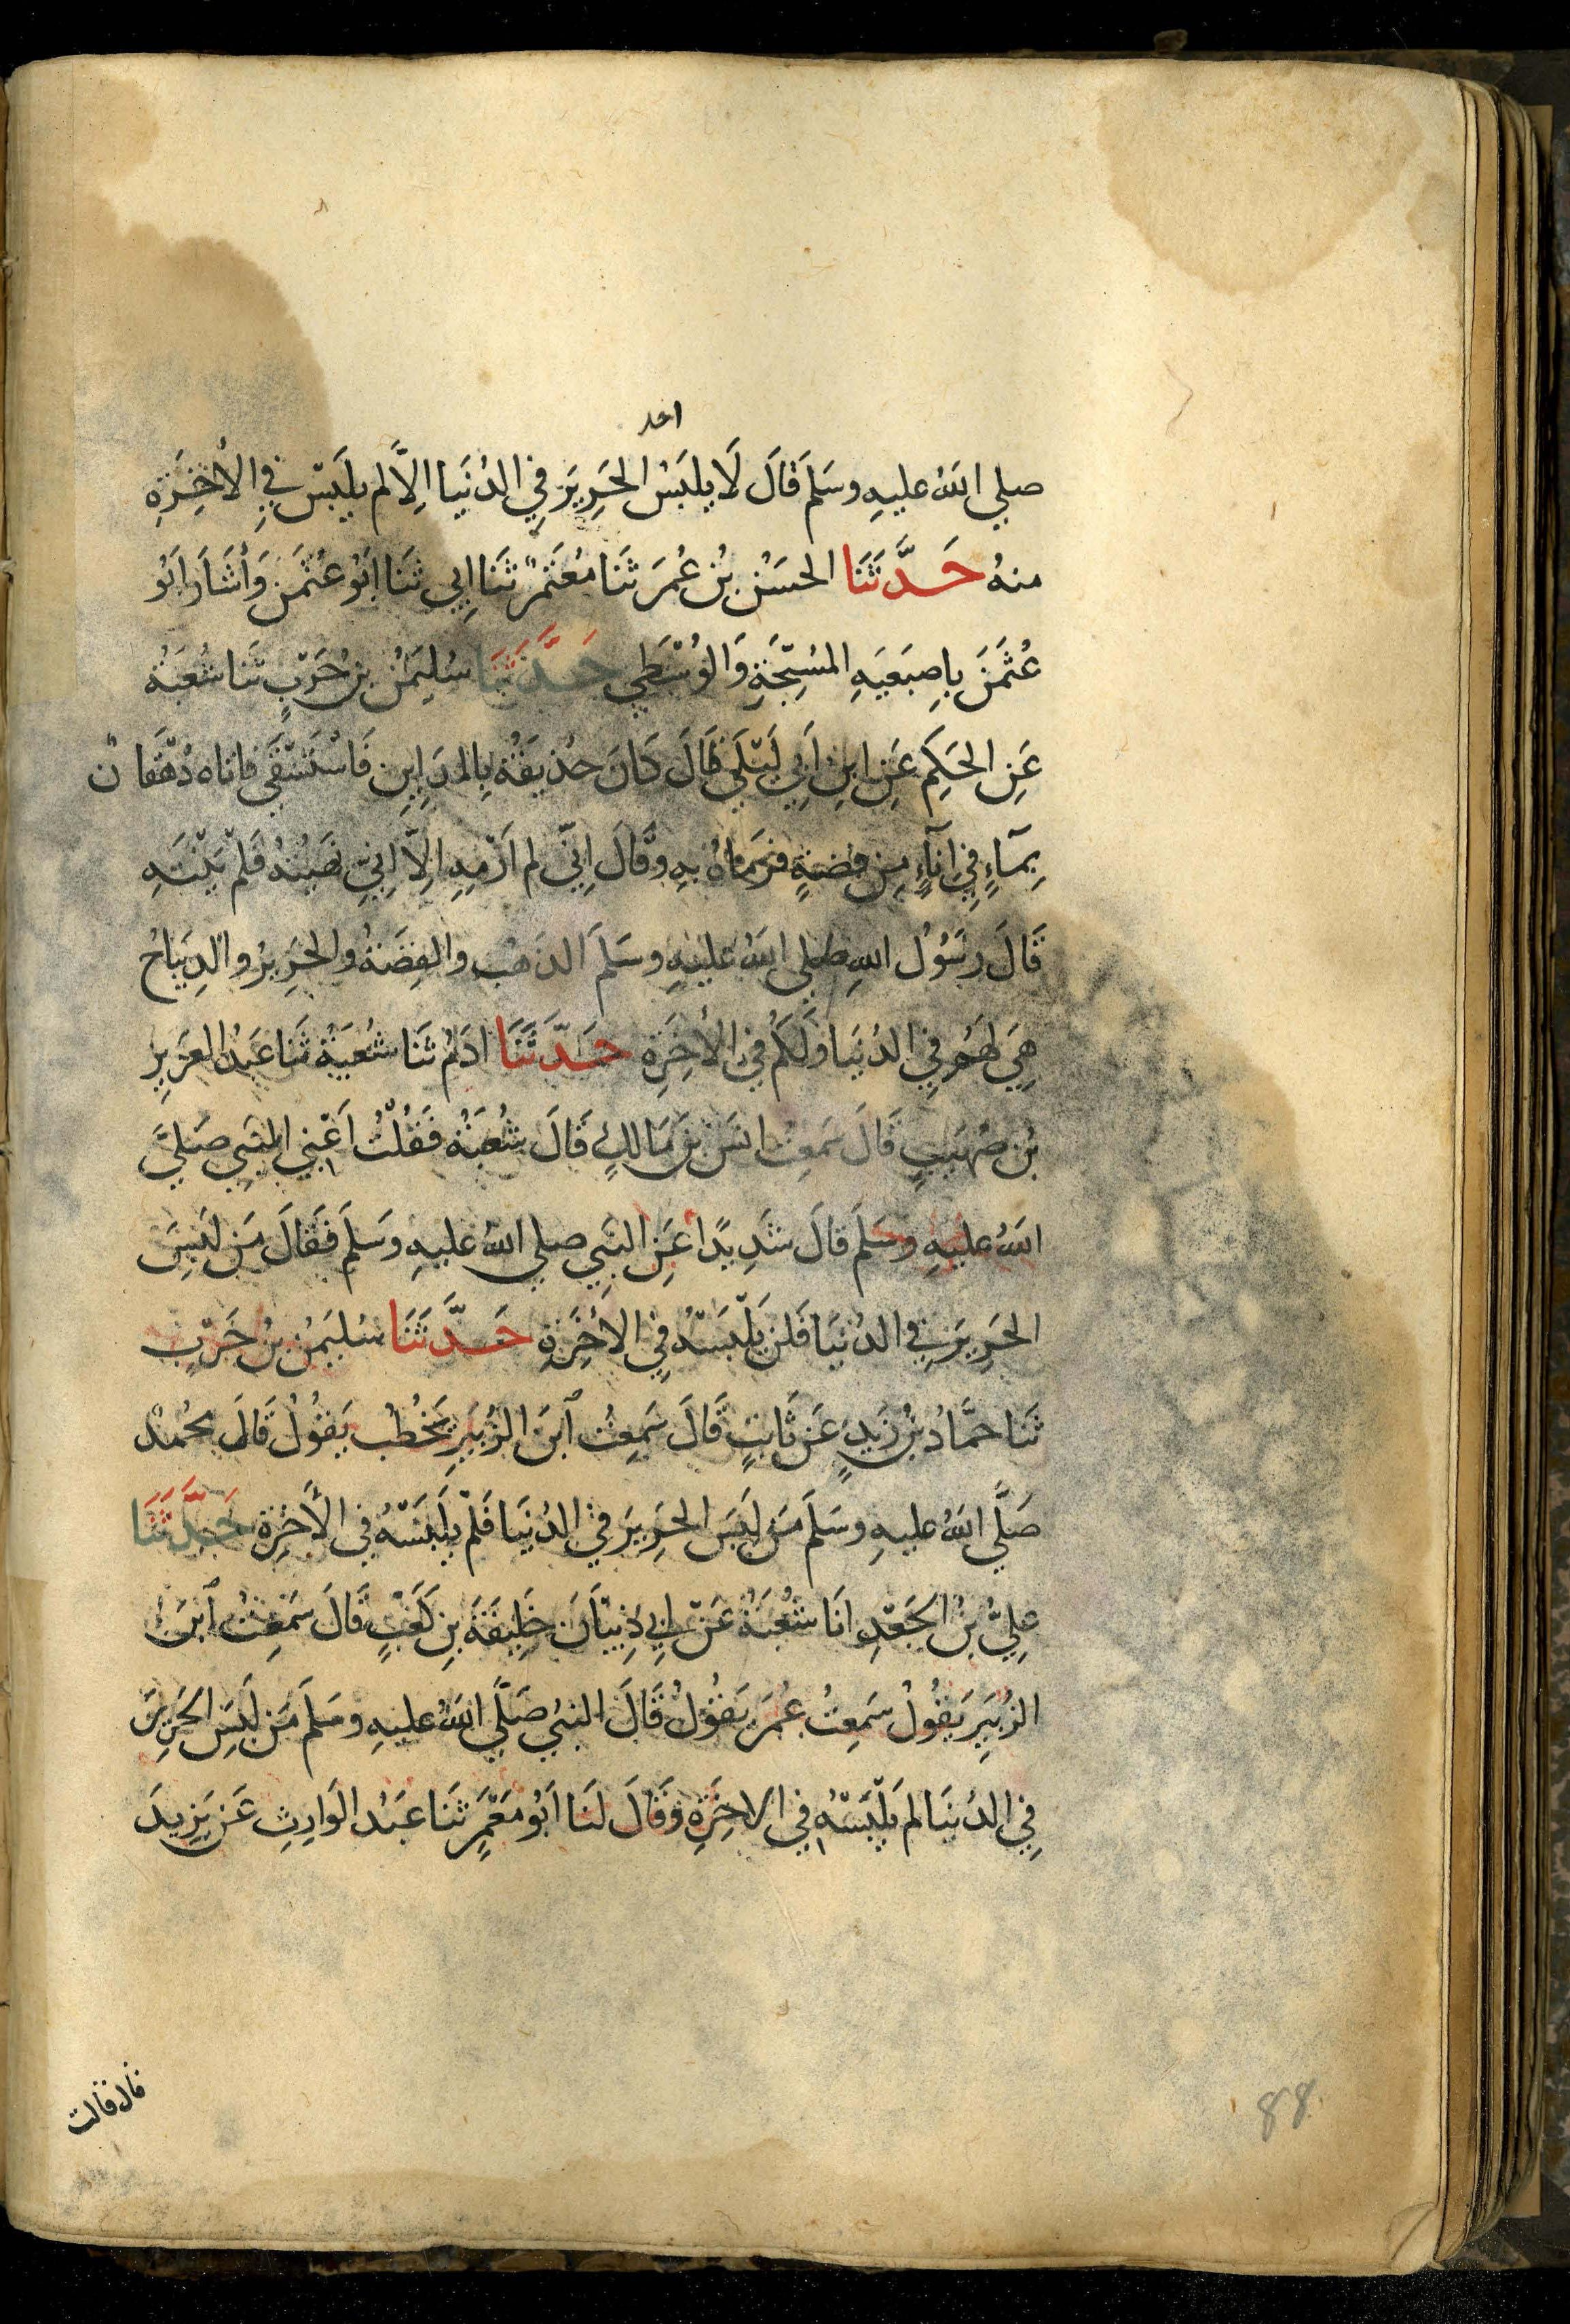 احد
صلي اللهُ عليهِ وسَلَمَ قَالَ لَا يلبَسْ الحَرِيرَ فِي الدُنيَا اِلَّا لم يلبَسْ فِي الأخِرَةِ
منهُ حَدَّثَنَا الحسَنُ بنُ عُمَرَ ثَنا مُعْتَمرٌ ثَنَا اِبِي ثَنا اَبُو عُثمٰنَ وَأشَارَ اَبُو
عُثمٰنَ باِصبَعَيهِ المسُبّحَةِ وَالوُسْطَي حَدَّثَنَا سُليمٰنُ بنُ حَرْبٍ ثَنا شُعبَةُ
عَنِ الحَكِمِ عَنِ ابنِ اَبِي لَيْلَي قَالَ كَانَ حُذيفَةُ بِالمدَاينِ فَاسْتَسْقَي فاتاه دُهْقَان
بِمآءٍ فِي اِنآءٍ مِن فضةٍ فرَمَاهُ بهِ وَقَالَ اِنّي لم اَرْمهِ اِلاّ اِنِّي نَهَيتُهُ فَلَمْ يَنْتَهِ
قَالَ رسُوْلُ اللهِ صلي اللهُ عليهِ وسَلمَ الذهبُ والفِضَةُ والحَرِيرُ والدِيبَاجُ
هِيَ لهَمُ فِي الدُنيَا وَلَكُم فِي الأخِرَةِ حَدَّثَنَا ادَمُ ثَنَا شُعبَةُ ثَنَا عبدُ العَزِيزِ
بنُ صُهَيبٍ قَالَ سَمِعتُ انسَ بنَ مَالكٍ قَالَ شُعبَةُ فَقُلْتُ اَعْنِ النبَيِ صَلَيَّ
اللهُ عليهِ وسَلَمَ قالَ شَدِيدًا عَنِ النبَيِ صلي اللهُ عليهِ وسَلَمَ فَقَالَ مَن لَبِسَ
الحَرِيرَ فِي الدُنيَا فَلن يَلْبَسَهُ فِي الأخِرَةِ حَدَّثَنَا سُليَمٰنُ بنُ حَرْبٍ
ثَنا حمَّادُ بنُ زَيدٍ عَن ثَابتٍ قَالَ سَمِعتُ اَبنَ الزُبَيرِ يَخطُب يَقُولُ قَالَ محُمدٌ
صَلَّي اللهُ عليهِ وسَلمَ مَن لبَسَ الحَرِيرَ في الدُنيَا فَلَمْ يلَبَسْهُ فِي الأخِرَةِ حَدَّثَنَا
عليُّ بنُ الجَعْدِ انَا شُعبَةُ عَن اَبي ذِبيَانَ خَلِيفَةَ بنِ كَعْبٍ قَالَ سَمِعتُ اَبنَ
الزُبَيرِ يَقُولُ سَمِعتُ عُمَرَ يَقُولُ قَالَ النبيُ صَلَّي اللهُ عليهِ وسَلَمَ مَن لَبِسَ الحَرِيرَ
فِي الدُنيَا لم يَلْبَسْهُ فِي الاخِرَةِ وَقَالَ لَنَا اَبُو مَعْمَرٍ ثَنَا عبَدُ الوَارِثِ عَن يَزِيدَ
قال قالت
88